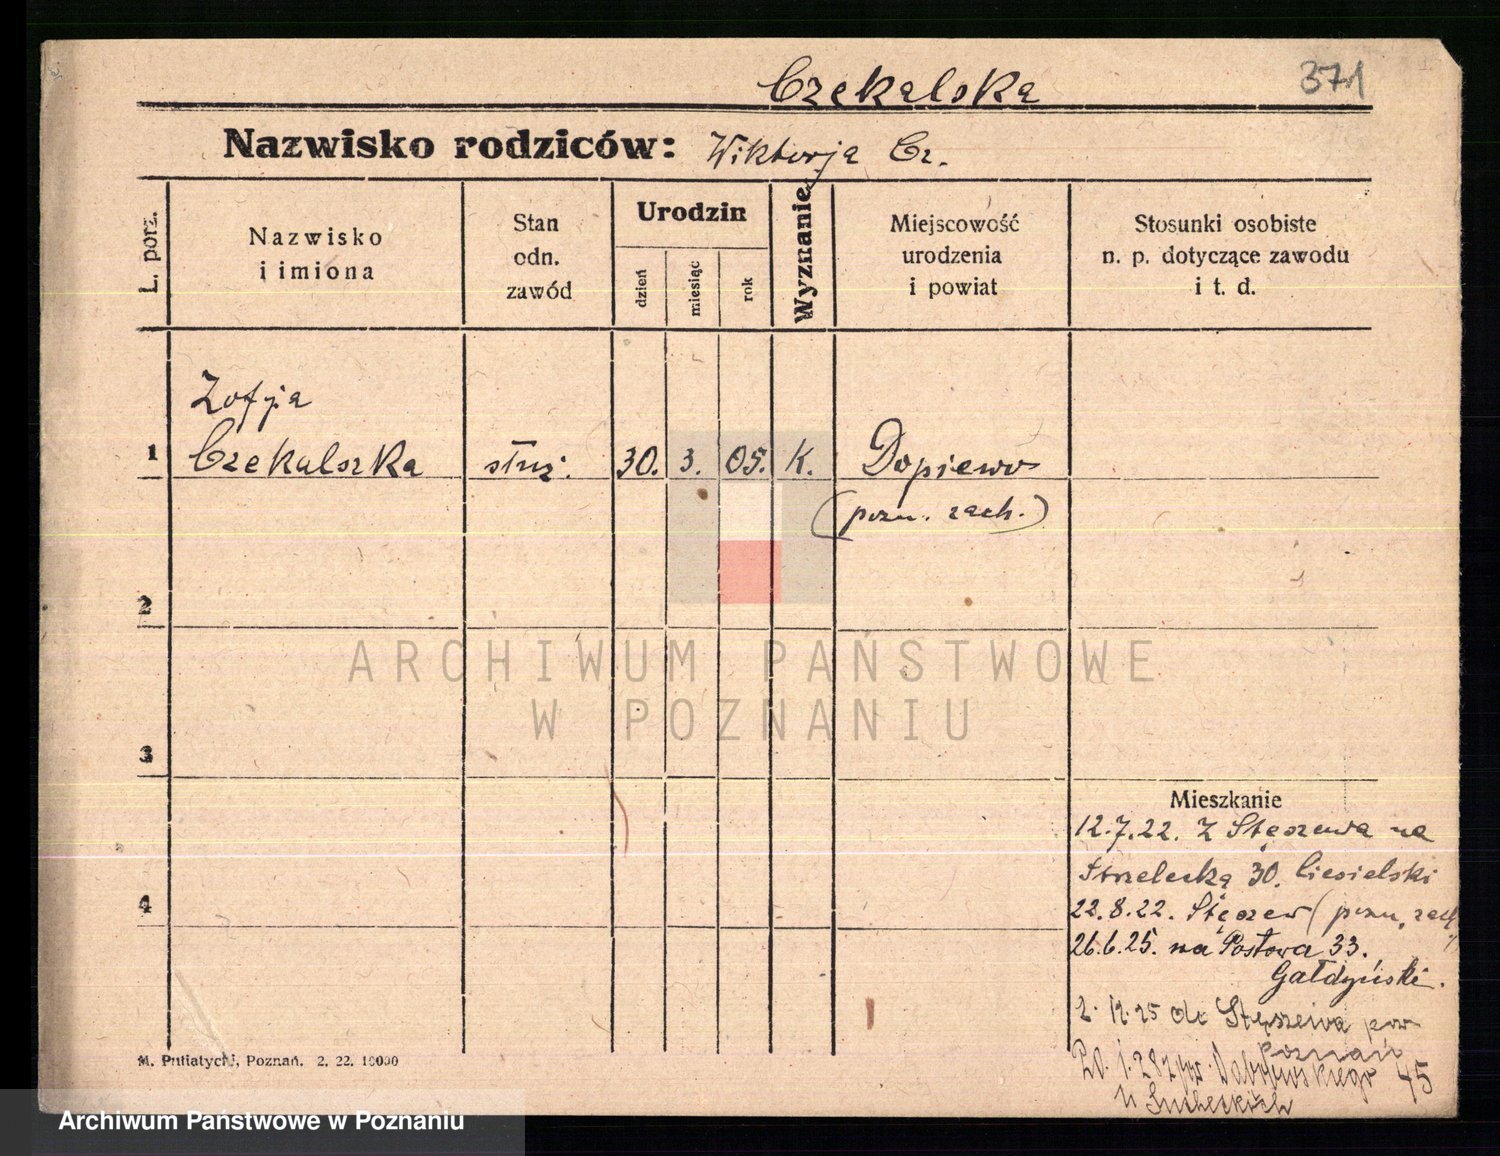 Czekalska
371
Nazwisko rodziców: Wiktorja Cz.
L. porz.
Nazwisko
i imiona
Stan
odn.
zawód
Urodzin
dzień
miesiąc
rok
Wyznanie
Miejscowość
urodzenia
i powiat
Stosunki osobiste
n. p. dotyczące zawodu
i t. d.
Zofja
1 Czekalska służ. 30. 3. 05. K. Dopiewo
(pozn. zach.)
2
3
4
Mieszkanie
12.7.22. Z Stęszewa na
Strzelecką 30. Ciesielski
22.8.22. Stęszew (pozn. zach.)
26.6.25. na Postowa 33.
Gałdyński.
2. 12. 25 do Stęszewa pow
Poznań
20. 1. 28 Dąbrowskiego 45
u
M. Putiatycki, Poznań. 2. 22. 10000
ARCHIWUM PAŃSTWOWE
W POZNANIU
Archiwum Państwowe w Poznaniu